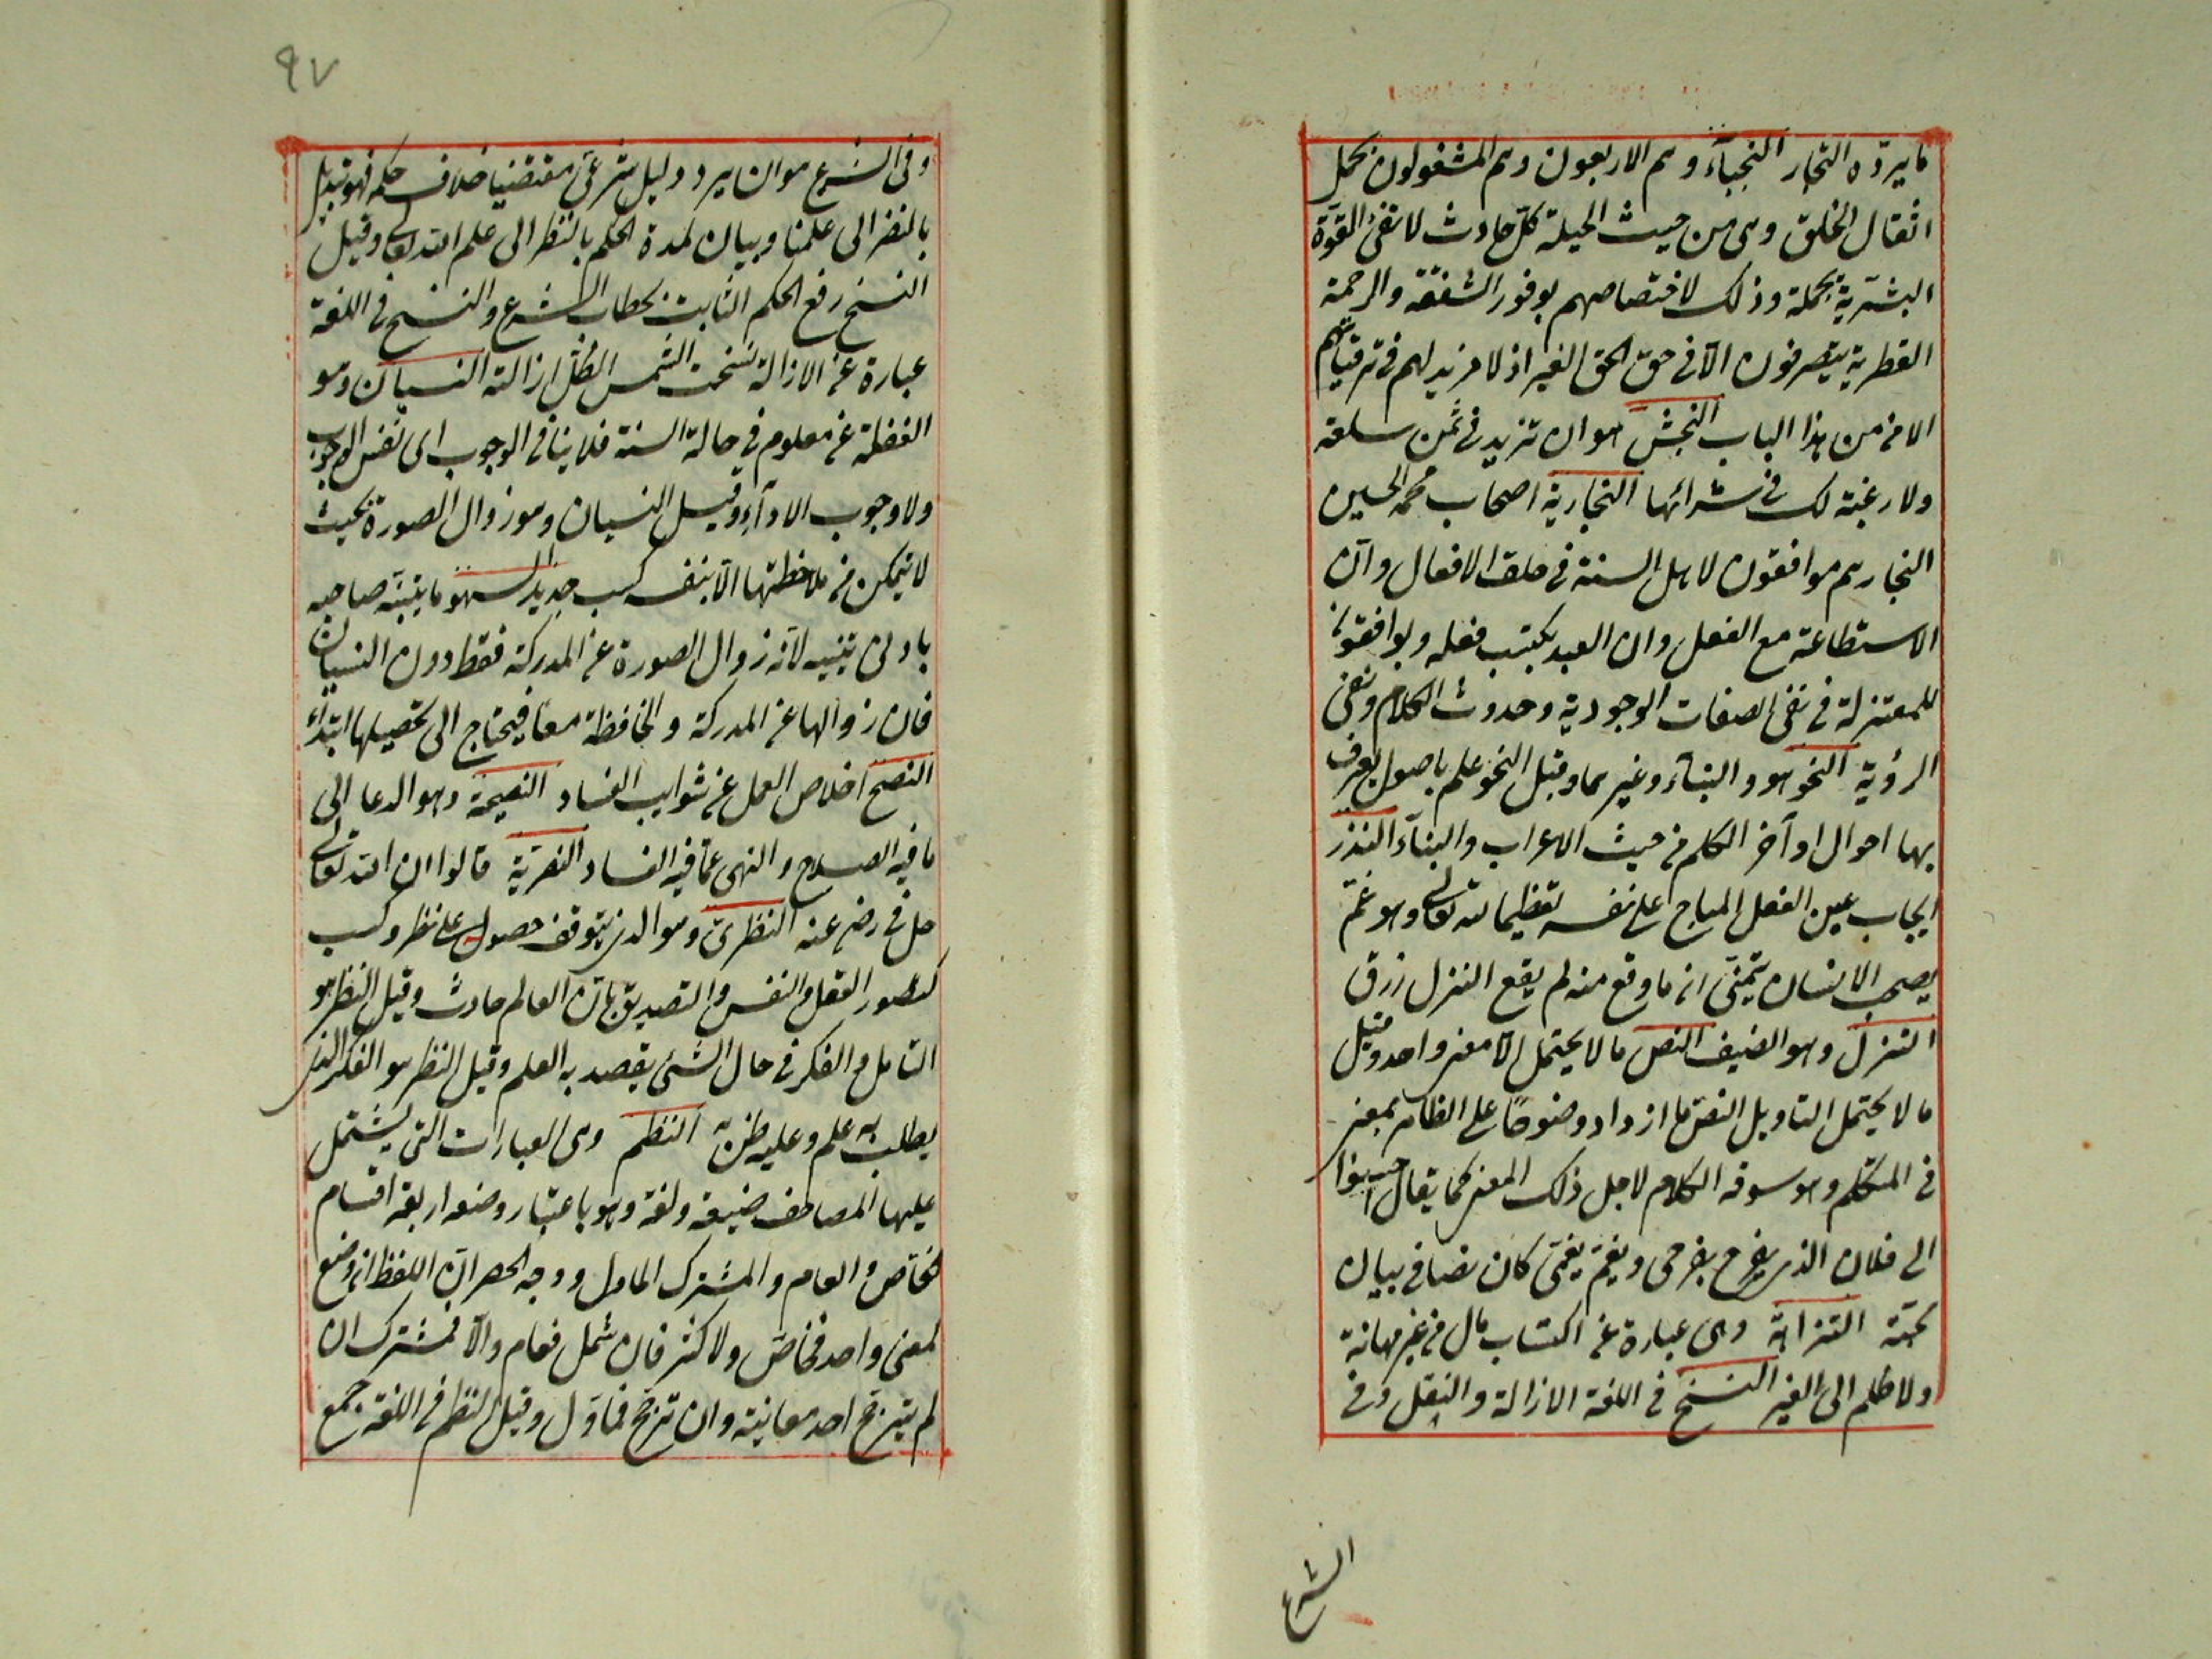 ما يردّه التجار النجبآء وهم الاربعون وهم المشغولون بحمل
اثقال الخلق وهى من حيث الجملة كلّ حادث لا تفى القوّة
البشريّة بحمله وذلك لاختصاصهم بوفور الشفقة والرحمة
الفطرية يتصرفون الّا فى حق الغير اذ لا مزيد لهم فى ترقياتهم
الا من هذا الباب النجش هو ان تزيد فى ثمن سلعة
ولا رغبة لك فى شرائها النجارية اصحاب محمد الحسين
النجار هم موافقون لاهل السنة فى خلق الافعال وانّ
الاستطاعة مع الفعل وان العبد يكتسب فعله ويوافقون
للمعتزلة فى نفى الصفات الوجودية وحدوث الكلام ونفى
الرؤية النحو هو والبناء وغيرهما وقيل النحو علم باصول يعرف
بها احوال اوآخر الكلم من حيث الاعراب والبنآء النذر
ايجاب عين الفعل المباح على نفسه تعظيما لله تعالى وهو غمّ
يصحب الانسان يتمنّى ان ما وقع منه لم يقع النزل رزق
النزل وهو الضيف النص ما لا يحتمل الّا معنى واحد وقيل
ما لا يحتمل التاويل النص ما ازداد وضوحًا على الظاهر بمعنى
فى المتكلم وهو سوقه الكلام لاجل ذلك المعنى كما يقال احسنوا
الى فلان الذى يفرح بفرحى ويغتم بغمّى كان نصا فى بيان
محبّته النزاهة وهى عبارة عن اكتساب مال من غير مهانة
ولا ظلم الى الغير النسخ فى اللغة الازالة والنقل وفى
الشرع
٩٧
وفى الشرع هو ان يرد دليل شرعى مقتضيا خلاف حكمه فهو تبديل
بالنضر الى علمنا وبيان لمدة الحكم بالنظر الى علم الله تعالى وقيل
النسخ رفع الحكم الثابت بخطاب الشرع والنسخ فى اللغة
عبارة عن الازالة نسخت الشمس الظل ازالته النسيان وهو
الغفلة عن معلوم فى حالة السنة فلا ينافى الوجوب اى نفس الوجوب
ولا وجوب الادآء وقيل النسيان وهو زوال الصورة بحيث
لا يتمكن من ملاحظتها الّا بتف كسب جديد السهو ما يتنبّه صاحبه
بادنى تنبيه لانّه زوال الصورة عن المدركة فقط دون النسيان
فان زوالها عن المدركة والحافظة معًا فيحتاج الى تحصيلها ابتدآء
النصح اخلاص العمل عن شوايب الفساد النصيحة وهو الدعا الى
ما فيه الصلاح والنهى عمّا فيه الفساد النصريّة قالوا ان الله تعالى
حل فى رضى عنه النظرىّ وهو الذى يتوقف حصوله على نظر وكسب
كتصور العقل والنفس والتصديق بانّ العالم حادث وقيل النظر هو
التامل والفكر فى حال الشئ يقصد به العلم وقيل النظر هو الفكر الذى
يطلب به علم وعليه ظن به النظم وهى العبارات التى يشتمل
عليها المصاحف ضيعة ولغة وهو باعتبار وضعه اربعة اقسام
فخاص والعام والمشترك الماول ووجه الحصر انّ اللفظ ان وضع
لمعنى واحد فخاص ولاكثر فان شمل فعام والّا فمشترك ان
لم يترجّح احد معانيه وان ترجّح فماوّل وقيل النظم فى اللغة جمع